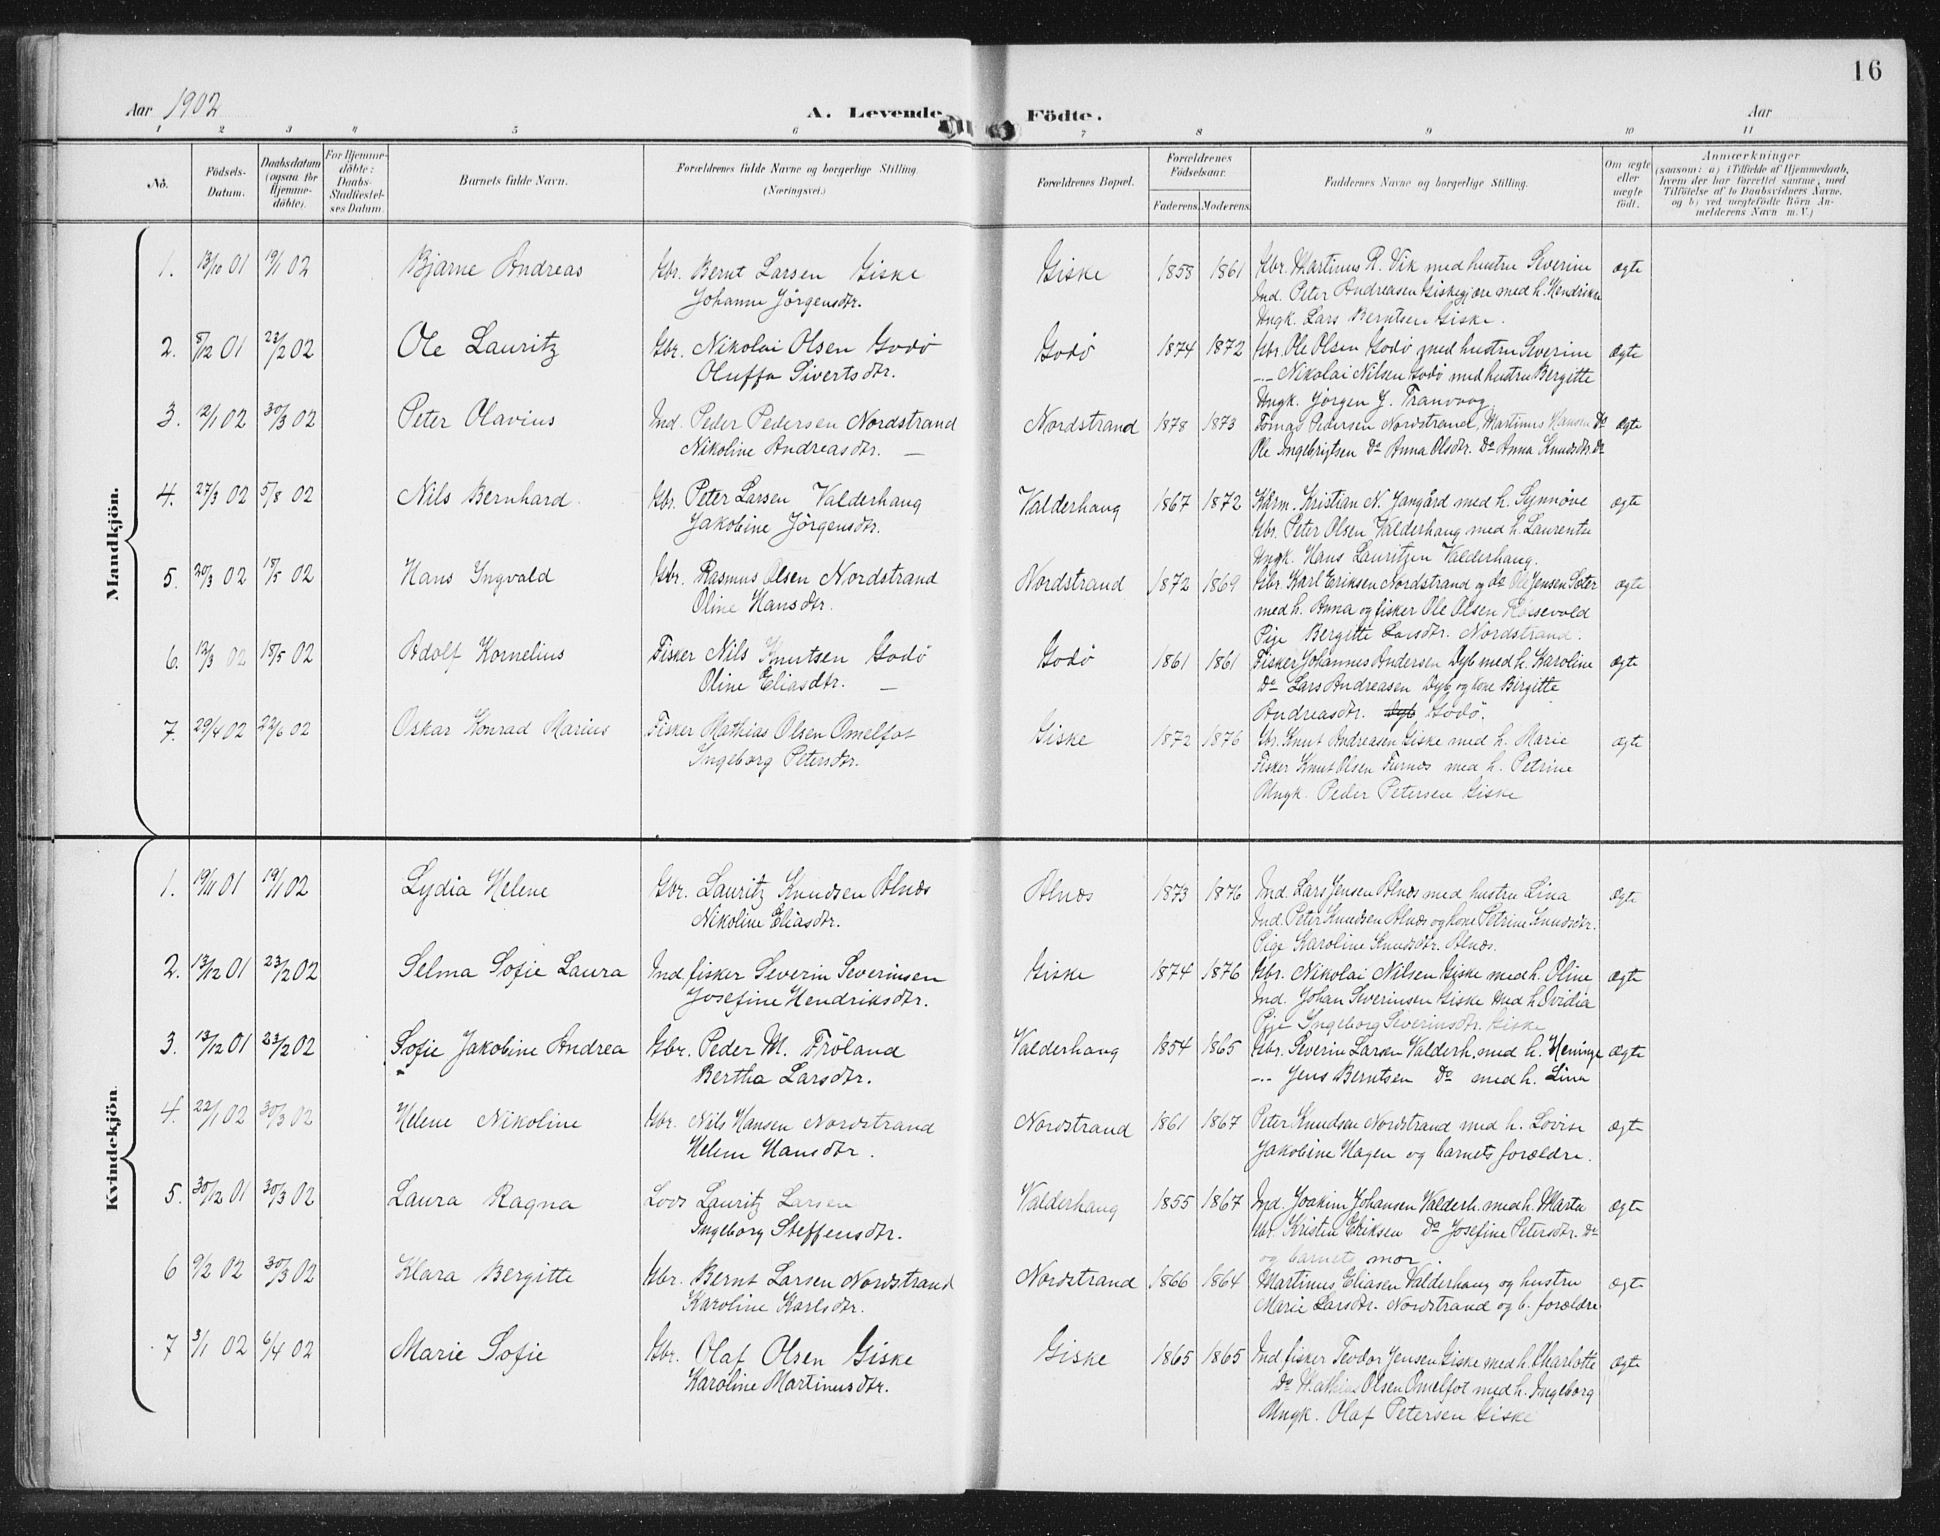 16
Aar 1902 A. Levende Födte. Aar
1 2 3 4 5 6 7 8 9 10 11
No. Födsels-Datum. Daabsdatum (ogsaa for Hjemmedöbte). For Hjemmedöbte: Daabs-Stadfæstelses Datum. Barnets fulde Navn. Forældrenes fulde Navne og borgerlige Stilling. (Næringsvei.) Forældrenes Bopæl. Forældrenes Födselsaar. Faderens. Moderens. Faddernes Navne og borgerlige Stilling. Om ægte eller uægte födt. Anmærkninger (saasom: a) i Tilfælde af Hjemmedaab, hvem der har forrettet samme, med Tilföielse af to Daabsvidners Navne, og b) ved uægtefödte Börn Anmelderens Navn m. V.)
Mandkjön.
1. 13/10 01 19/1 02 Bjarne Andreas Gbr. Bernt Larsen Giske Giske 1858 1861 Gbr. Martinus R. Vik med hustru Severine ægte
Johanne Jörgensdtr. Ind. Peter Andreasen Giskegjære med h. Hendrikke
Ungk. Lars Berntsen Giske.
2. 8/12 01 22/2 02 Ole Lauritz Gbr. Nikolai Olsen Godö Godö 1874 1872 Gbr. Ole Olsen Godö med hustru Severine ægte
Oluffa Sivertsdtr. -"- Nikolai Nilsen Godö med hustru Bergitte
Ungk. Jörgen J. Tranvaag
3. 12/1 02 30/3 02 Peter Olavius Ind. Peder Pedersen Nordstrand Nordstrand 1878 1873 Tomas Pedersen Nordstrand, Martinus Hansen Do ægte
Nikoline Andreasdtr. — Ole Ingebrigtsen Do Anna Olsdtr. Do Anna Knudsdtr. Do
4. 27/3 02 5/8 02 Nils Bernhard. Gbr. Peter Larsen Valderhaug Valderhaug 1867 1872 Kårm. Kristian N. Jangård med h. Synnöve ægte
Jakobine Jörgensdtr. Gbr. Peter Olsen Valderhaug med h. Laurentse
Ungk. Hans Lauritzen Valderhaug.
5. 20/3 02 18/5 02 Hans Ingvald Gbr. Rasmus Olsen Nordstrand Nordstrand 1872 1869 Gbr. Karl Eriksen Nordstrand og do Ole Jensen Sæter ægte
Oline Hansdtr. med h. Anna og fisker Ole Olsen
Pige Bergitte Larsdtr. Nordstrand.
6. 12/3 02 18/5 02 Adolf Kornelius Fisker Nils Knutsen Godö Godö 1861 1861 Fisker Johannes Andersen Dyb med h. Karoline ægte
Oline Eliasdtr. — Do Lars Andreasen Dyb og kone Birgitte
Andreasdtr. Dyb Godö.
7. 29/4 02 29/6 02 Oskar Konrad Marius Fisker Mathias Olsen Omelfot Giske 1872 1876 Gbr. Knut Andreasen Giske med h. Marie ægte
Ingeborg Petersdtr. Fisker Knut Olsen Furnes med h. Petrine
Ungk. Peder Petersen Giske
Kvindekjön
1. 19/11 01 19/1 02 Lydia Helene Gbr. Lauritz Knudsen Alnæs Alnæs 1873 1876 Ind. Lars Jensen Alnæs med hustru Lina ægte
Nikoline Eliasdtr. Ind. Peter Knudsen Alnæs og kone Petrine Knudsdtr.
Pige Karoline Knudsdtr. Alnæs.
2. 13/12 01 23/2 02 Selma Sofie Laura Ind. fisker Severin Severinsen Giske 1874 1876 Gbr. Nikolai Nilsen Giske med h. Oline ægte
Josefine Hendriksdtr. Ind. Johan Severinsen Giske med h. Ovidia
Pige Ingeborg Severinsdtr. Giske
3. 13/12 01 23/2 02 Sofie Jakobine Andrea Gbr. Peder M. Fröland Valderhaug 1854 1865 Gbr. Severin Larsen Valderh. med h. Heninge ægte
Bertha Larsdtr. -"- Jens Berntsen Do med h. Lina
4. 22/1 02 30/3 02 Helene Nikoline Gbr. Nils Hansen Nordstrand Nordstrand 1861 1867 Peter Knudsen Nordstrand med h. Lovise ægte
Helene Hansdtr. Jakobine Hagen og barnets forældre.
5. 30/12 01 30/3 02 Laura Ragna Lods Lauritz Larsen Valderhaug 1855 1867 Ind. Joakim Johansen Valderh. med h. Marta ægte
Ingeborg Steffensdtr. Gbr. Kristen Eriksen Do Josefine Petersdtr. Do
og barnets mor.
6 9/2 02 30/3 02 Klara Bergitte Gbr. Bernt Larsen Nordstrand Nordstrand 1866 1864 Martinus Eliasen Valderhaug og hustru ægte
Karoline Karlsdtr. Marie Larsdtr. Nordstrand og b. forældre
7 3/1 02 6/4 02 Marie Sofie Gbr. Olaf Olsen Giske Giske 1865 1865 Ind. fisker Teodor Jensen Giske med h. Charlotte ægte
Karoline Martinusdtr. Do Mathias Olsen Omelfot med h. Ingeborg
Ungk. Olaf Petersen Giske